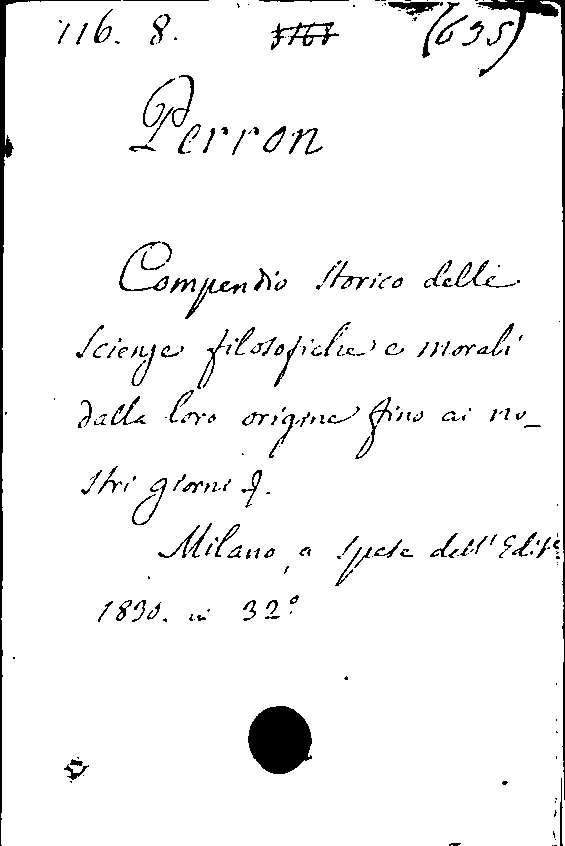 116. 8. (635)
Perron
Compendio storico delle
scienze filosofiche e morali
dalla loro origine fino ai no_
stri giorni
Milano, a spese dell'Edit.e
1830. in 32.°